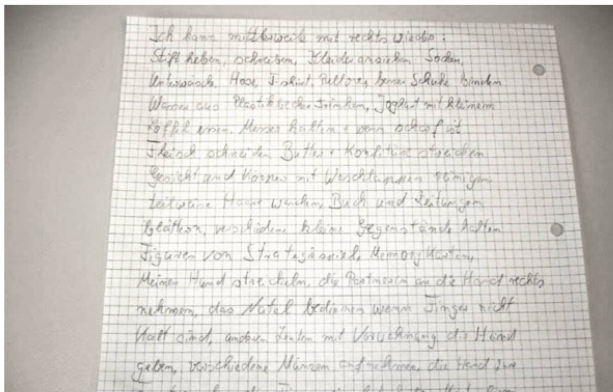 Ich kann mittlerweile mit rechts wieder:
Stift heben, schreiben, Kleider anziehen Socken,
Unterwäsche, Hose, T-shirt, Pullover, Schuhe binden
Wasser aus Plastikbecher trinken, Jogurt mit kleinem
Löffel essen, Messer halten + wenn scharf ist
Fleisch schneiden Butter + Konfitüre streichen
Gesicht und Körper mit Waschlappen reinigen
teilweise Haare waschen, Buch und Zeitungen
blättern, verschidene kleine Gegenstände halten
Figuren von Strategiespiel, Memory Karten,
Meinen Hund streicheln, die Partnerin an die Hand rechts
nehmen, das Natel bedienen wenn Finger nicht
Kalt sind, anderen Leuten mit die Hand
geben, verschiedene Münzen aufnehmen, die Hand zur